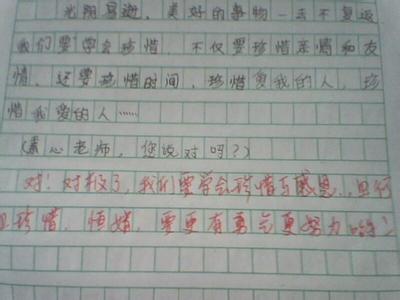 光阴易逝，美好的事物一去不复返
我们要学会珍惜，不仅要珍惜亲情和友
情，还要珍惜时间，珍惜爱我的人，珍
惜我爱的人……
（素心老师，您说对吗？）
对！对极了，我们要学会珍惜与感恩…且行
且珍惜，恒婧，要更有勇气更努力哟！